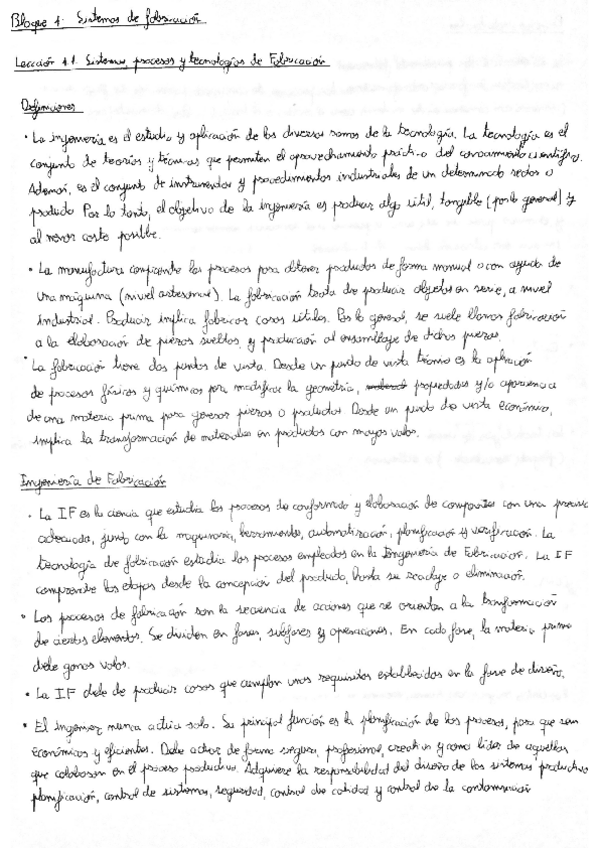 Bloque 1: Sistemas de fabricación
Lección 1.1. Sistemas, procesos y tecnologías de Fabricación
Definiciones
· La ingeniería es el estudio y aplicación de las diversas ramas de la tecnología. La tecnología es el
conjunto de teorías y técnicas que permiten el aprovechamiento práctico del conocimiento científico.
Además, es el conjunto de instrumentos y procedimientos industriales de un determinado sector o
producto. Por lo tanto, el objetivo de la ingeniería es producir algo útil, tangible (por lo general) y
al menor coste posible.
· La manufactura comprende los procesos para obtener productos de forma manual o con ayuda de
una máquina (nivel artesanal). La fabricación trata de producir objetos en serie, a nivel
industrial. Producir implica fabricar cosas útiles. Por lo general, se suele llamar fabricación
a la elaboración de piezas sueltas y producción al ensamblaje de dichas piezas.
· La fabricación tiene dos puntos de vista. Desde un punto de vista técnico es la aplicación
de procesos físicos y químicos para modificar la geometría, propiedades y/o apariencia
de una materia prima para generar piezas o productos. Desde un punto de vista económico,
implica la transformación de materiales en productos con mayor valor.
Ingeniería de Fabricación
· La IF es la ciencia que estudia los procesos de conformado y elaboración de componentes con una
adecuada, junto con la maquinaria, herramientas, automatización, planificación y verificación. La
tecnología de fabricación estudia los procesos empleados en la Ingeniería de Fabricación. La IF
comprende las etapas desde la concepción del producto, hasta su reciclaje o eliminación.
· Los procesos de fabricación son la secuencia de acciones que se orientan a la transformación
de ciertos elementos. Se dividen en fases, subfases y operaciones. En cada fase, la materia prima
debe ganar valor.
· La IF debe de producir cosas que cumplan unos requisitos establecidos en la fase de diseño.
· El ingeniero nunca actúa solo. Su principal función es la planificación de los procesos, para que sean
económicos y eficientes. Debe actuar de forma segura, profesional, creativa y como líder de aquellos
que colaboran en el proceso productivo. Adquiere la responsabilidad del diseño de los sistemas productivos
planificación, control de sistemas, seguridad, control de calidad y control de la contaminación